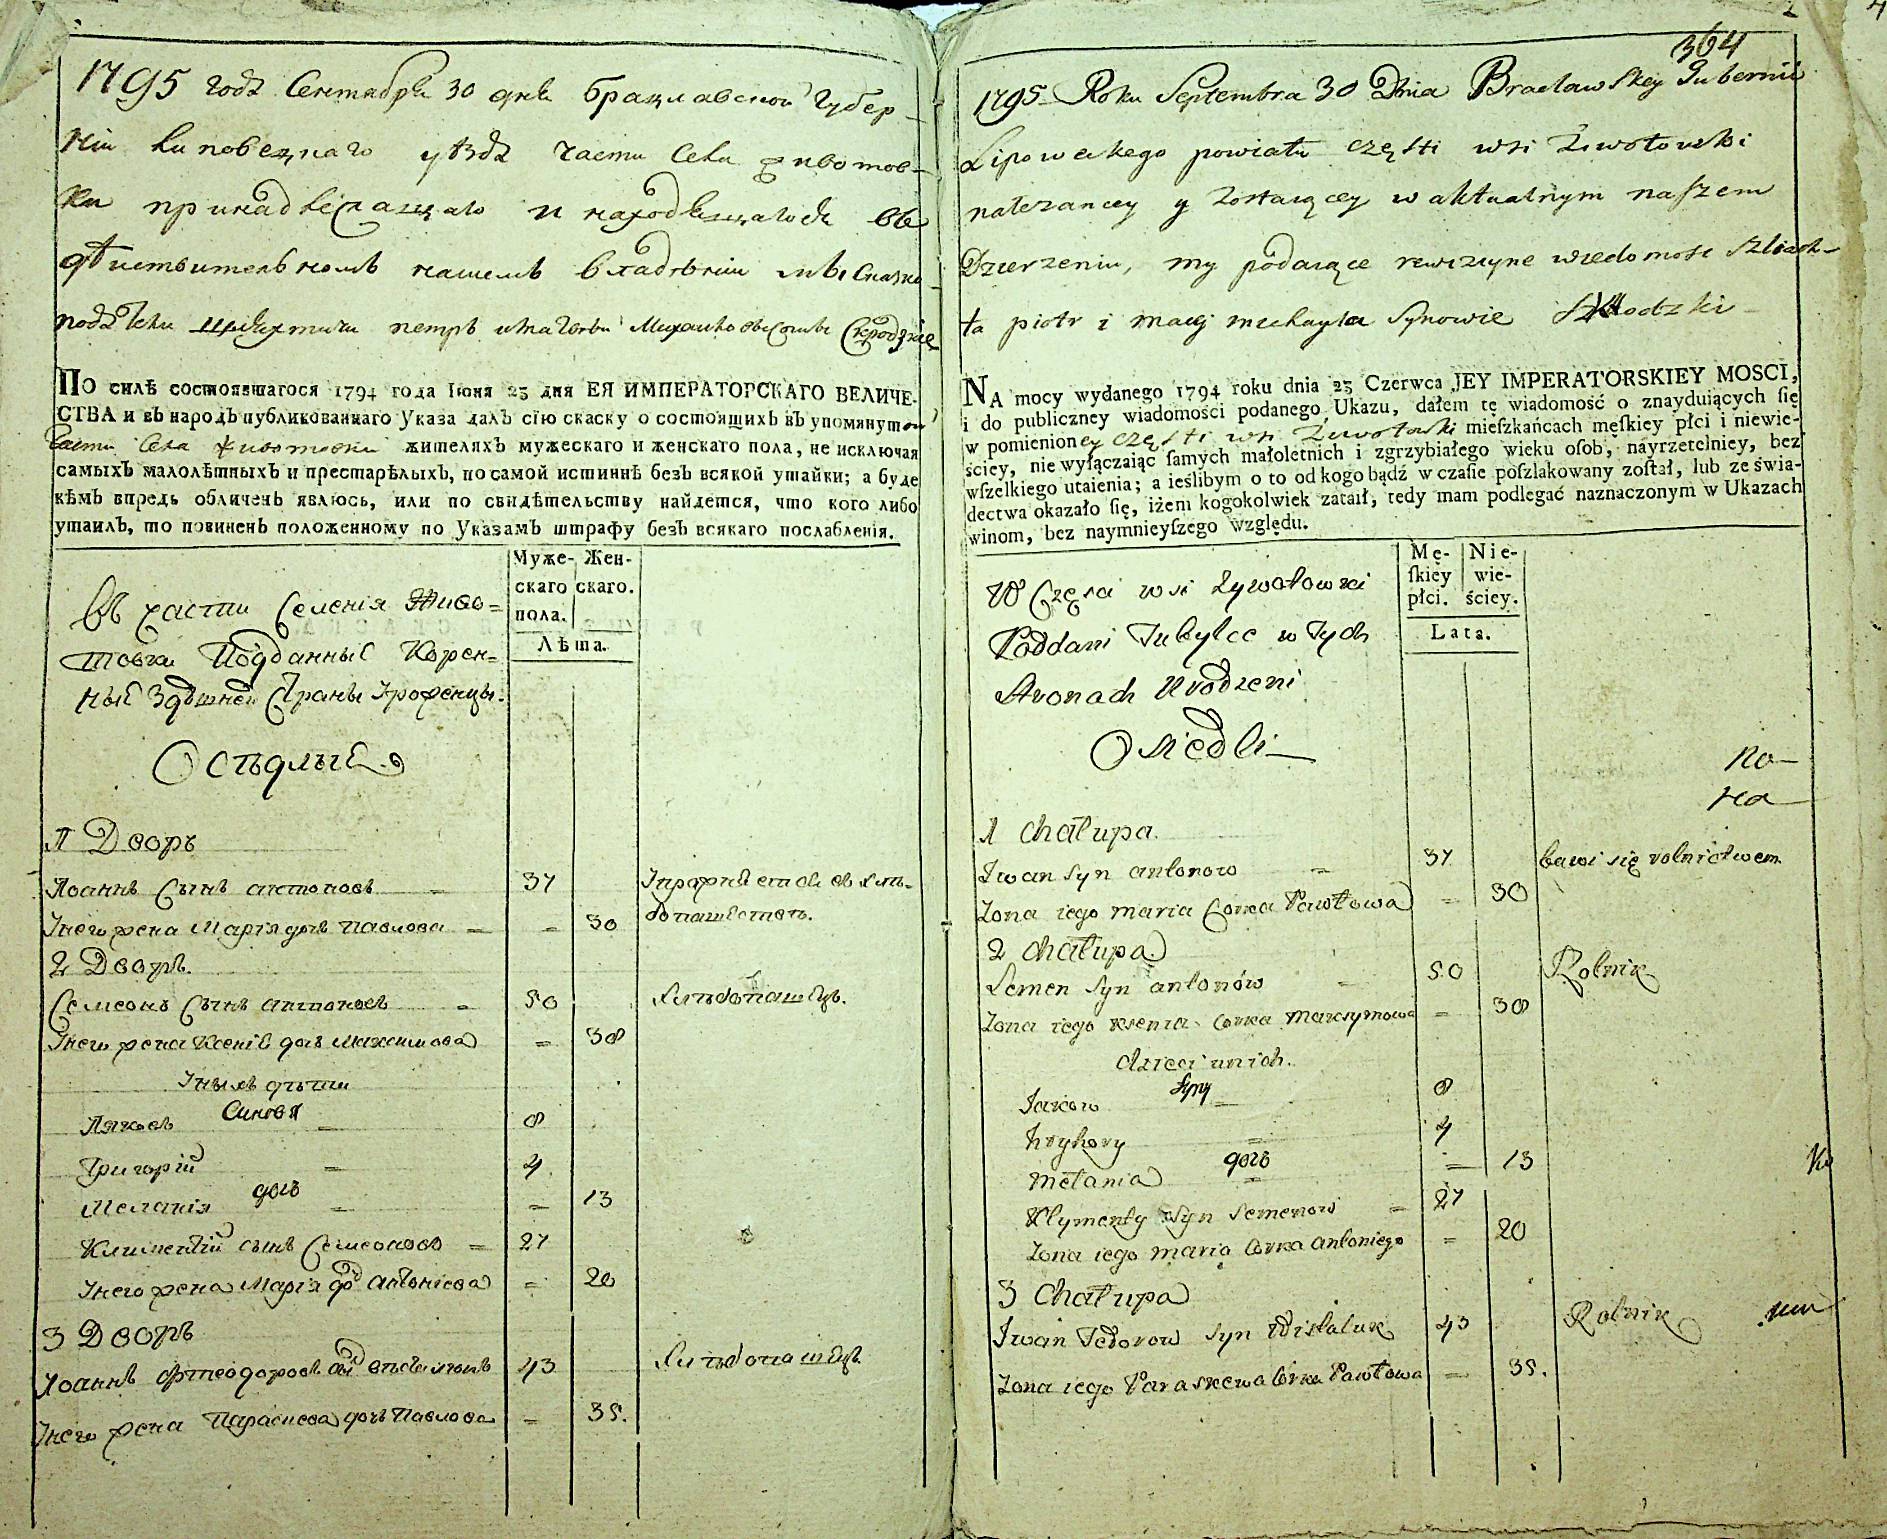 1795 годъ Сентября 30 дня Брацлавской Губер-
ніи Липовецкаго уѣзда части Села Животов-
ки принадлежащаго и находящагося въ
дѣйствительномъ нашемъ владѣніи мы
подъ шляхтичи петръ Михайловы Сыны
По силѣ состоявшагося 1794 года Іюня 23 дня ЕЯ ИМПЕРАТОРСКАГО ВЕЛИЧЕ-
СТВА и въ народъ публикованнаго Указа далъ сію скаску о состоящихъ въ упомянутой
части Села Животовки жителяхъ мужескаго и женскаго пола, не исключая
самыхъ малолѣтныхъ и престарѣлыхъ, по самой истиннѣ безъ всякой утайки; а буде
кѣмъ впредь обличенъ явлюсь, или по свидѣтельству найдется, что кого либо
утаилъ, то повиненъ положенному по Указамъ штрафу безъ всякаго послабленія.
Муже-скаго пола. Жен-скаго.
Лѣта.
Въ части Селенія Живо-
товки Подданные Корен-
ные Здѣшней Страны Урожденцы.
Осѣдлые
1 Дворъ
Іоаннъ Сынъ антоновъ = 37
Унего жена Марія дочь Павлова = = 30
2 Дворъ.
Семеонъ Сынъ антоновъ = 50 хлѣбопашецъ.
Унего жена Ксенія дочь Максимова = 38
Унихъ дѣти
Синовя
Яковъ = 8
Григорій = 4
дочь
Меланія = = 13
Климентій сынъ Семеоновъ = 27
Унего жена Марія дочь антоніева = 20
3 Дворъ
Іоаннъ Фтеодоровъ 43 хлѣбопашецъ
Унего жена Параскева дочь Павлова = 35.
364
1795 Roku Septembra 30 Dnia Bracławskey Gubernii
Lipoweckego powiatu części wsi Żiwotowki
należancey y zostaiącey w aktualnym naszem
Dzierżeniu, my podaiące rewizyine wiedomość szliach-
ta piotr i maciej michayła synowie
NA mocy wydanego 1794 roku dnia 23 Czerwca JEY IMPERATORSKIEY MOSCI,
i do publiczney wiadomości podanego Ukazu, dałem tę wiadomość o znayduiących się
w pomienioney części wsi Żiwotowki mieſzkańcach męſkiey płci i niewie-
ściey, nie wyłączaiąc ſamych małoletnich i zgrzybiałego wieku oſob, nayrzetelniey, bez
wſzelkiego utaienia; a ieślibym o to od kogo bądź w czaſie poſzlakowany zoſtał, lub ze świa-
dectwa okazało się, iżem kogokolwiek zataił, tedy mam podlegać naznaczonym w Ukazach
winom, bez naymnieyſzego względu.
Mę-ſkiey płci. Nie-wie-ściey.
Lata.
W Częsci wsi Zywotowki
Poddani Tubylce w Tych
Stronach Urodzeni
Osiedli
no
на
1 Chałupa.
Iwan syn antonow = 37 bawi się rolnictwem
Zona iego maria Corka Pawłowa = 30
2 Chałupa
Semen syn antonów 50 Rolnik
Zona iego Ksenia Corka Maksymowa = 38
dzieci unich.
syny
Jakow = 8
hryhory = 4
дочь
Mełania = = 13
Klymenty syn semenow = 27
Zona iego maria Corka antoniego = 20
3 Chałupa
Iwan Fedorow syn 43 Rolnik
Zona iego Paraskewa Corka Pawłowa = 35.